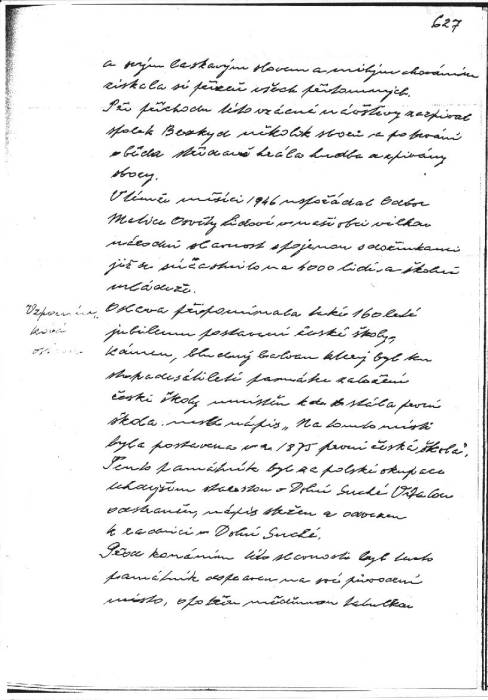 627
a svým laskavým slovem a milým chováním
získala si přízeň všech přítomných.
Při příchodu této vzácné návštěvy zazpíval
spolek Beskyd několik sborů a po
oběda střídavě hrála hudba a zpívány
sbory.
V témže měsíci 1946 uspořádal Odbor
Matice Osvěty Lidové v naší obci velkou
národní slavnost spojenou s dožínkami
již se súčastnilo na 4000 lidí a školní
mládeže.
Oslava připomínala také 160 leté
jubileum postavení české školy,
kámen, bludný balvan který byl ku
památce založení
české školy umístěn kde stála první
škola nápis „Na tomto místě
byla postavena v r. 1875 první česká škola".
Tento památník byl za polské okupace
tehdejším starostou v Dolní Suché
odstraněn, nápis stržen a odvezen
k radnici v Dolní Suché.
Před konáním této slavnosti byl tento
památník dopraven na své původní
místo, opatřen měděnou tabulkou